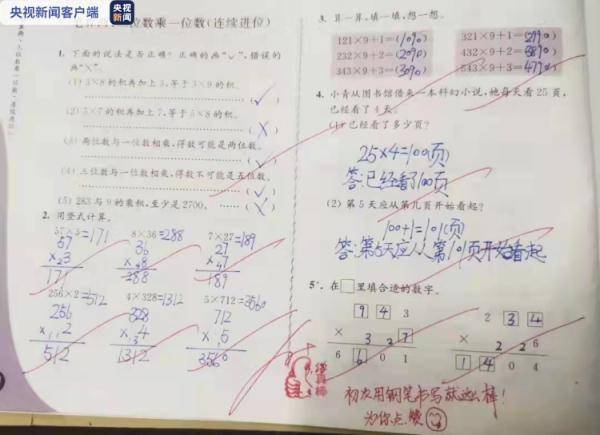 央视新闻客户端
位数乘一位数(连续进位)
1. 下面的说法是否正确?正确的画"√",错误的
画"×"。
(1) 3×8的积再加上3,等于3×9的积。
(√)
(2) 5×7的积再加上7,等于5×8的积。
(×)
(3) 两位数与一位数相乘,得数可能是两位数。
(4) 三位数与一位数相乘,得数不可能是五位数。
(√)
(5) 283与9的乘积,至少是2700。
2. 用竖式计算。
57×3=171 8×36=288 7×27=189
57 36 27
171 288 189
256×2=512 4×328=1312 5×712=3560
256 328 712
512 1312 3560
3. 算一算,填一填,想一想。
121×9+1=(1090)
232×9+2=(2090)
343×9+3=(3090)
321×9+1=(2890)
432×9+2=(3890)
543×9+3=
4. 小青从图书馆借来一本科幻小说,她每天看25页,
已经看了4天。
(1) 已经看了多少页?
25×4=100(页)
答:已经看了100页
(2) 第5天应从第几页开始看起?
100+1=101(页)
答:第5天应从第101页开始看起
5. 在□里填合适的数字。
9 4 3
× 7
6 6 0 1
2 3 4
× 6
1 4 0 4
你真棒
初次用钢笔书写就这么棒!
为你点赞